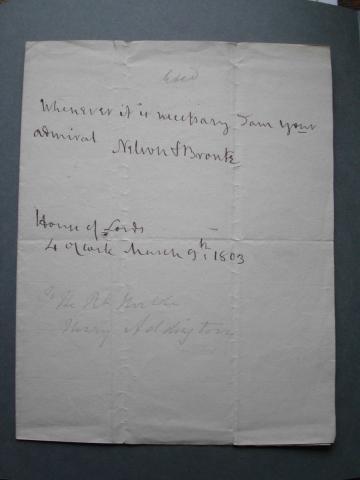 Whenever it is necessary I am your
admiral Nelson & Bronte
House of Lords
4 o'clock March 9th 1803
To The Rt Honble
Henry Addington